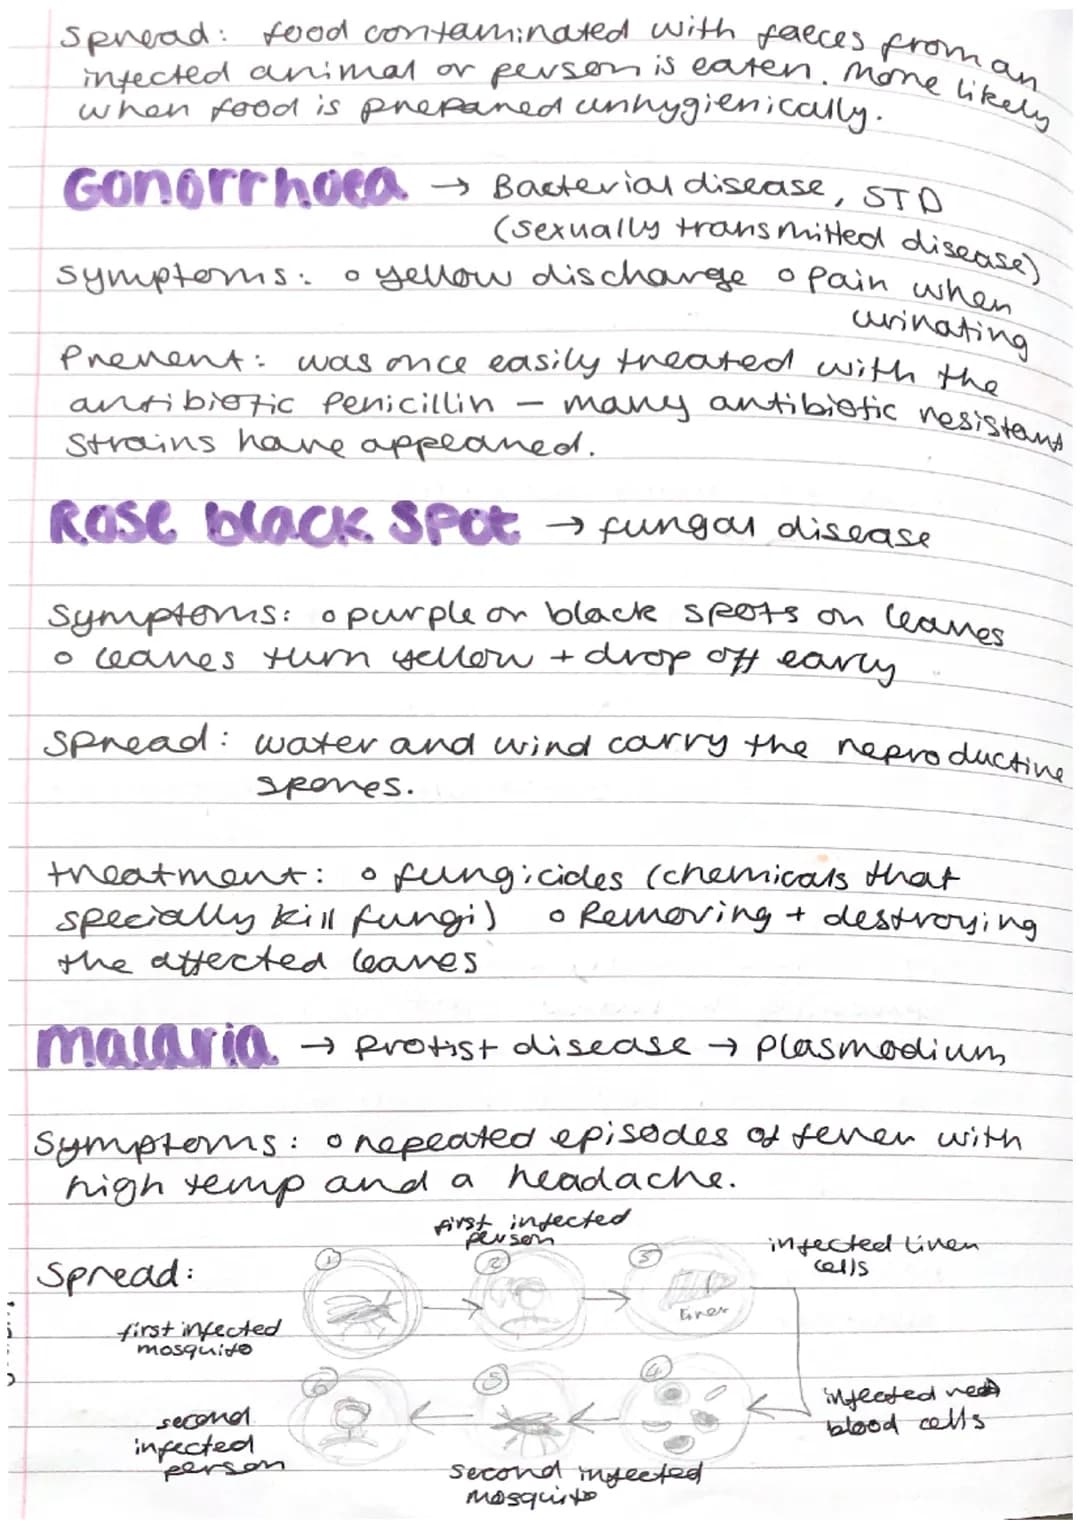 Spread: food contaminated with faeces from an
infected animal or person is eaten. More likely
when food is prepared unhygienically.
Gonorrhoea → Bacterial disease, STD
(sexually transmitted disease)
Symptoms: o yellow discharge o Pain when
urinating
Prevent: was once easily treated with the
antibiotic Penicillin – many antibiotic resistant
strains have appeared.
Rose black spot → fungal disease
Symptoms: o purple or black spots on leaves
o leaves turn yellow + drop off early
Spread: water and wind carry the reproductive
spores.
treatment: o fungicides (chemicals that
specially kill fungi) o Removing + destroying
the affected leaves
malaria → protist disease → plasmodium
Symptoms: o repeated episodes of fever with
high temp and a headache.
first infected
person
infected liver
cells
Spread:
1
2
3
liver
first infected
mosquito
6
5
4
infected red
blood cells
second
infected
person
second infected
mosquito